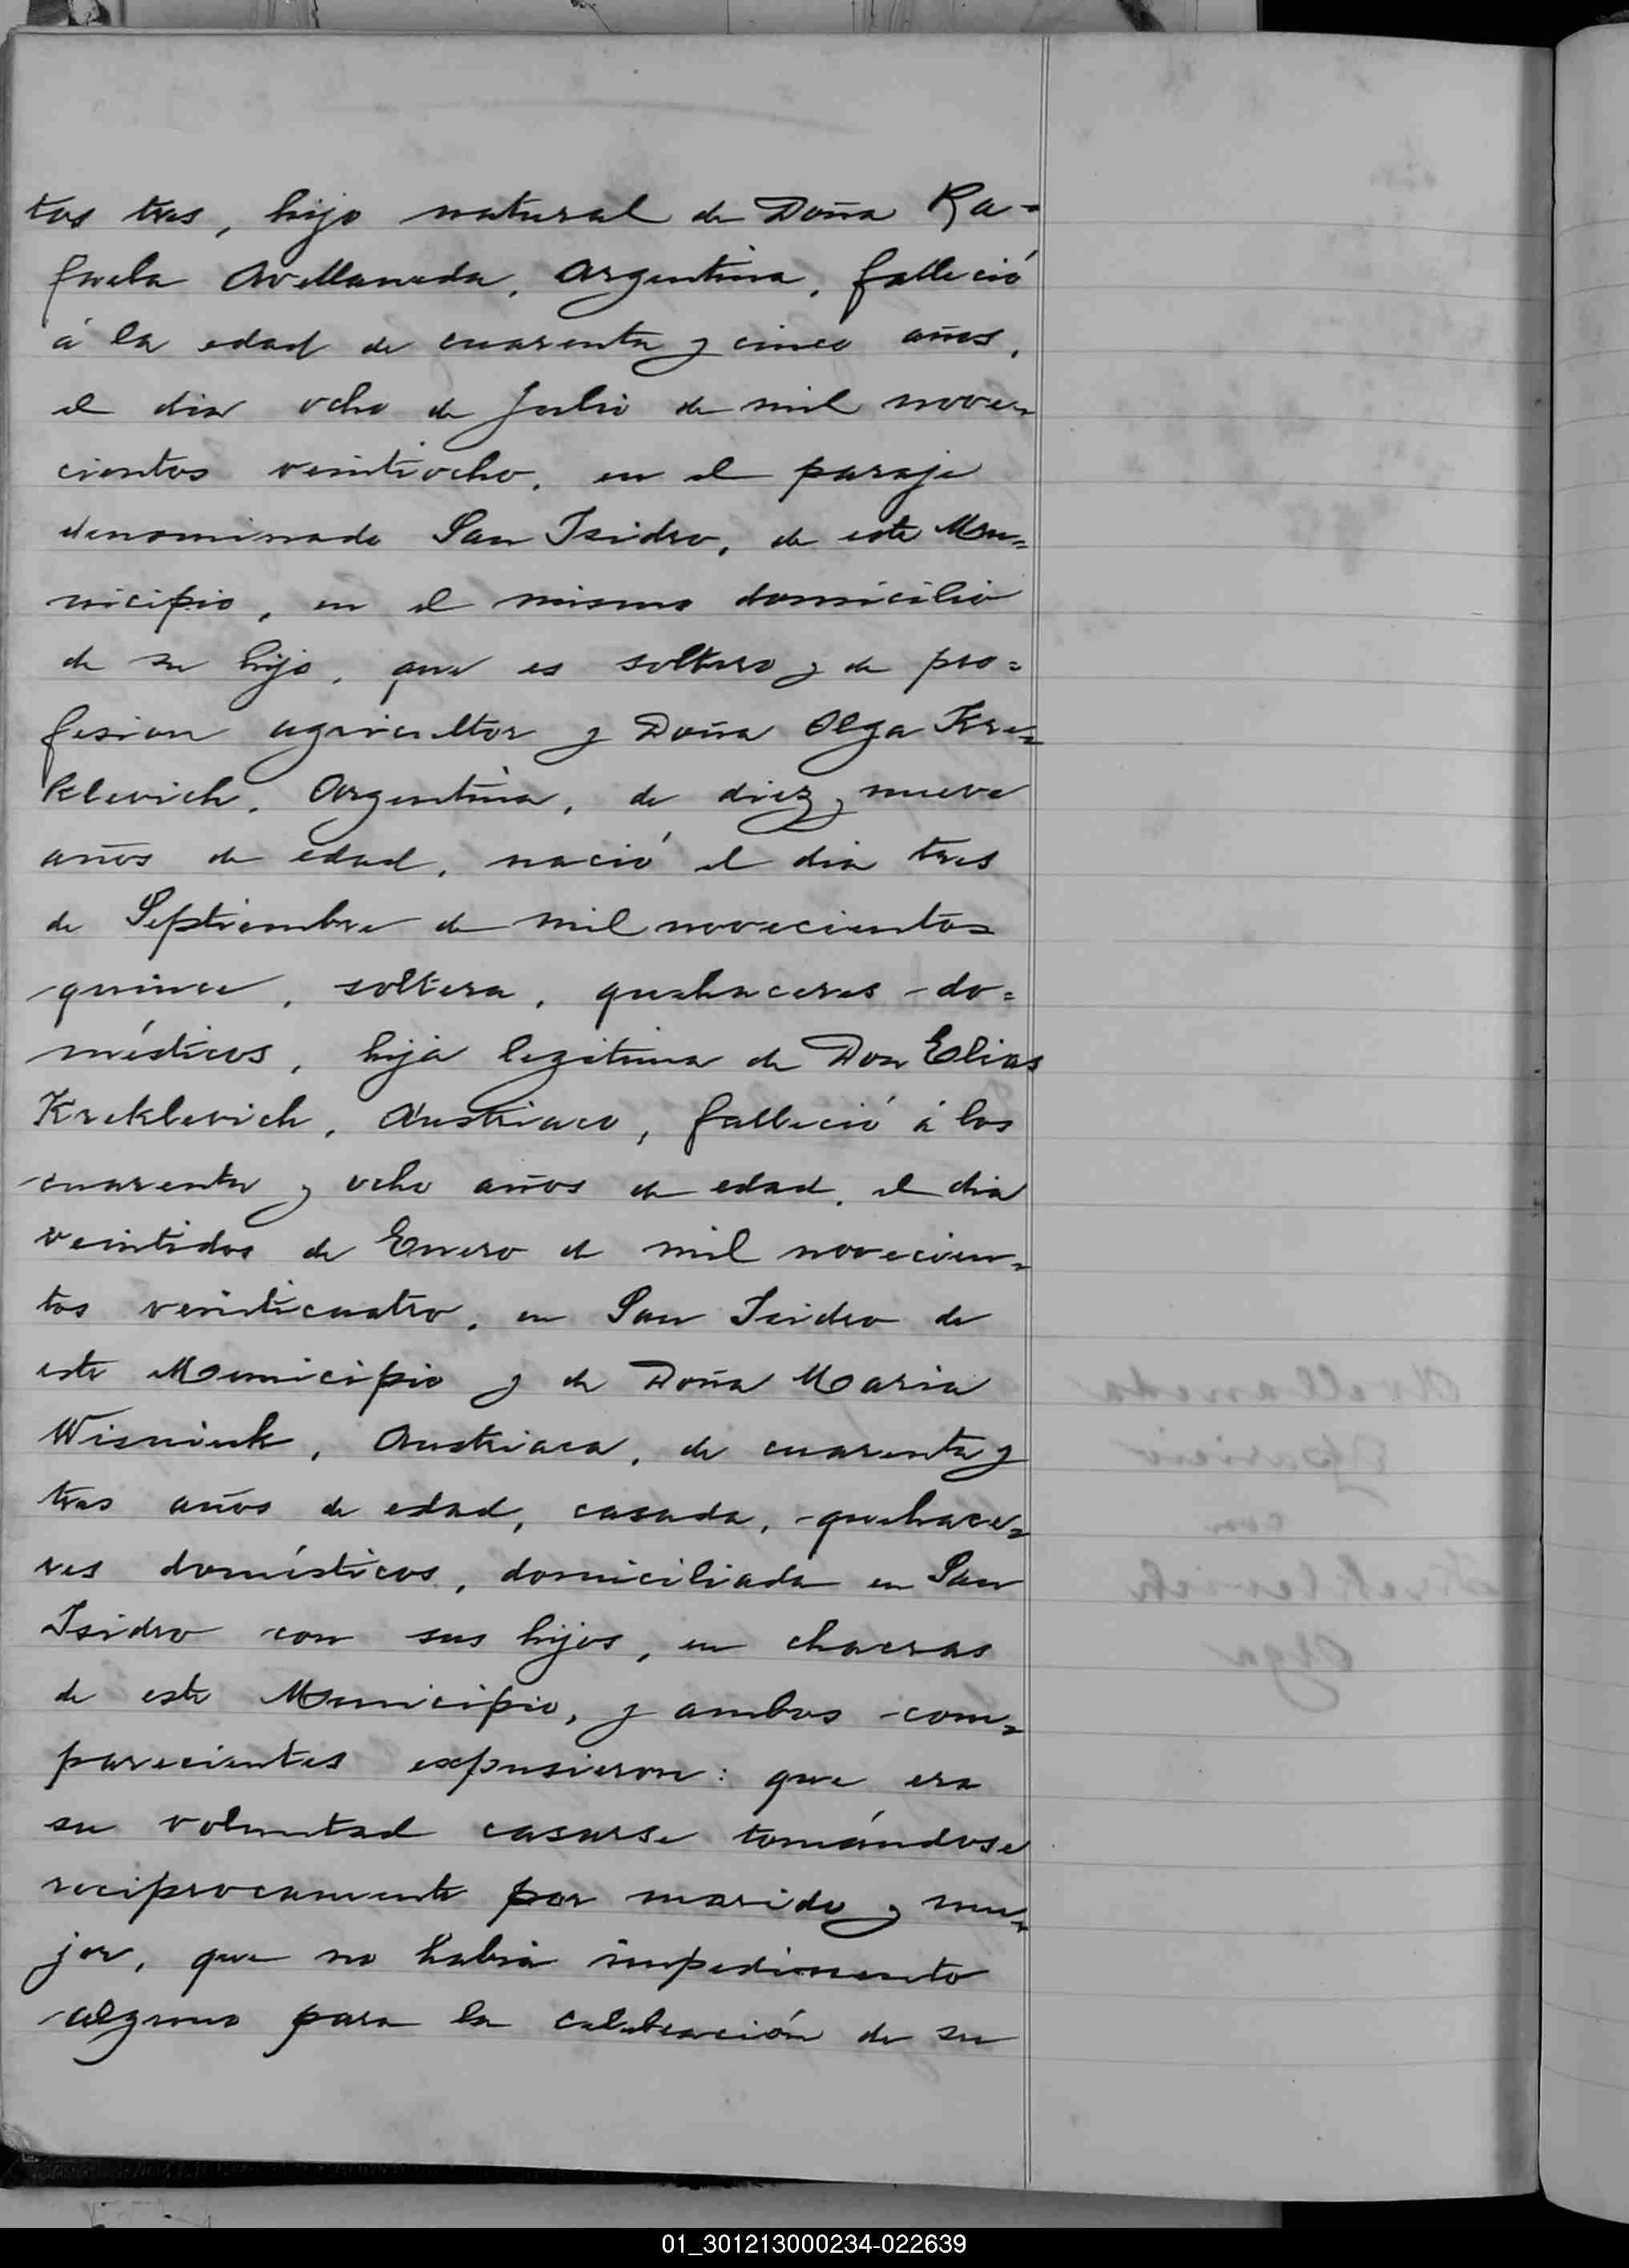 tos tres, hijo natural de Doña Ra=
faela Avellaneda, Argentina, falleció
á la edad de cuarenta y cinco años,
el dia ocho de Julio de mil nove=
cientos veintiocho, en el paraje
denominado San Isidro, de este Mu=
nicipio, en el mismo domicilio
de su hijo, que es soltero y de pro=
fesion agricultor y Doña Olga Kre=
klevich, Argentina, de diez y nueve
años de edad, nació el dia tres
de Septiembre de mil novecientos
quince, soltera, quehaceres do=
mésticos, hija legitima de Don Elias
Kreklevich, Austriaco, falleció á los
cuarenta y ocho años de edad, el dia
veintidos de Enero de mil novecien=
tos veinticuatro, en San Isidro de
este Municipio y de Doña Maria
Wisniuk, Austriaca, de cuarenta y
tres años de edad, casada, quehace=
res domésticos, domiciliada en San
Isidro con sus hijos, en chacras
de este Municipio, y ambos com=
parecientes expusieron: que era
su voluntad casarse tomándose
reciprocamente por marido y mu=
jer, que no habia impedimento
alguno para la celebración de su
Avellaneda
Aparicio
con
Kreklevich
Olga
01_301213000234-022639